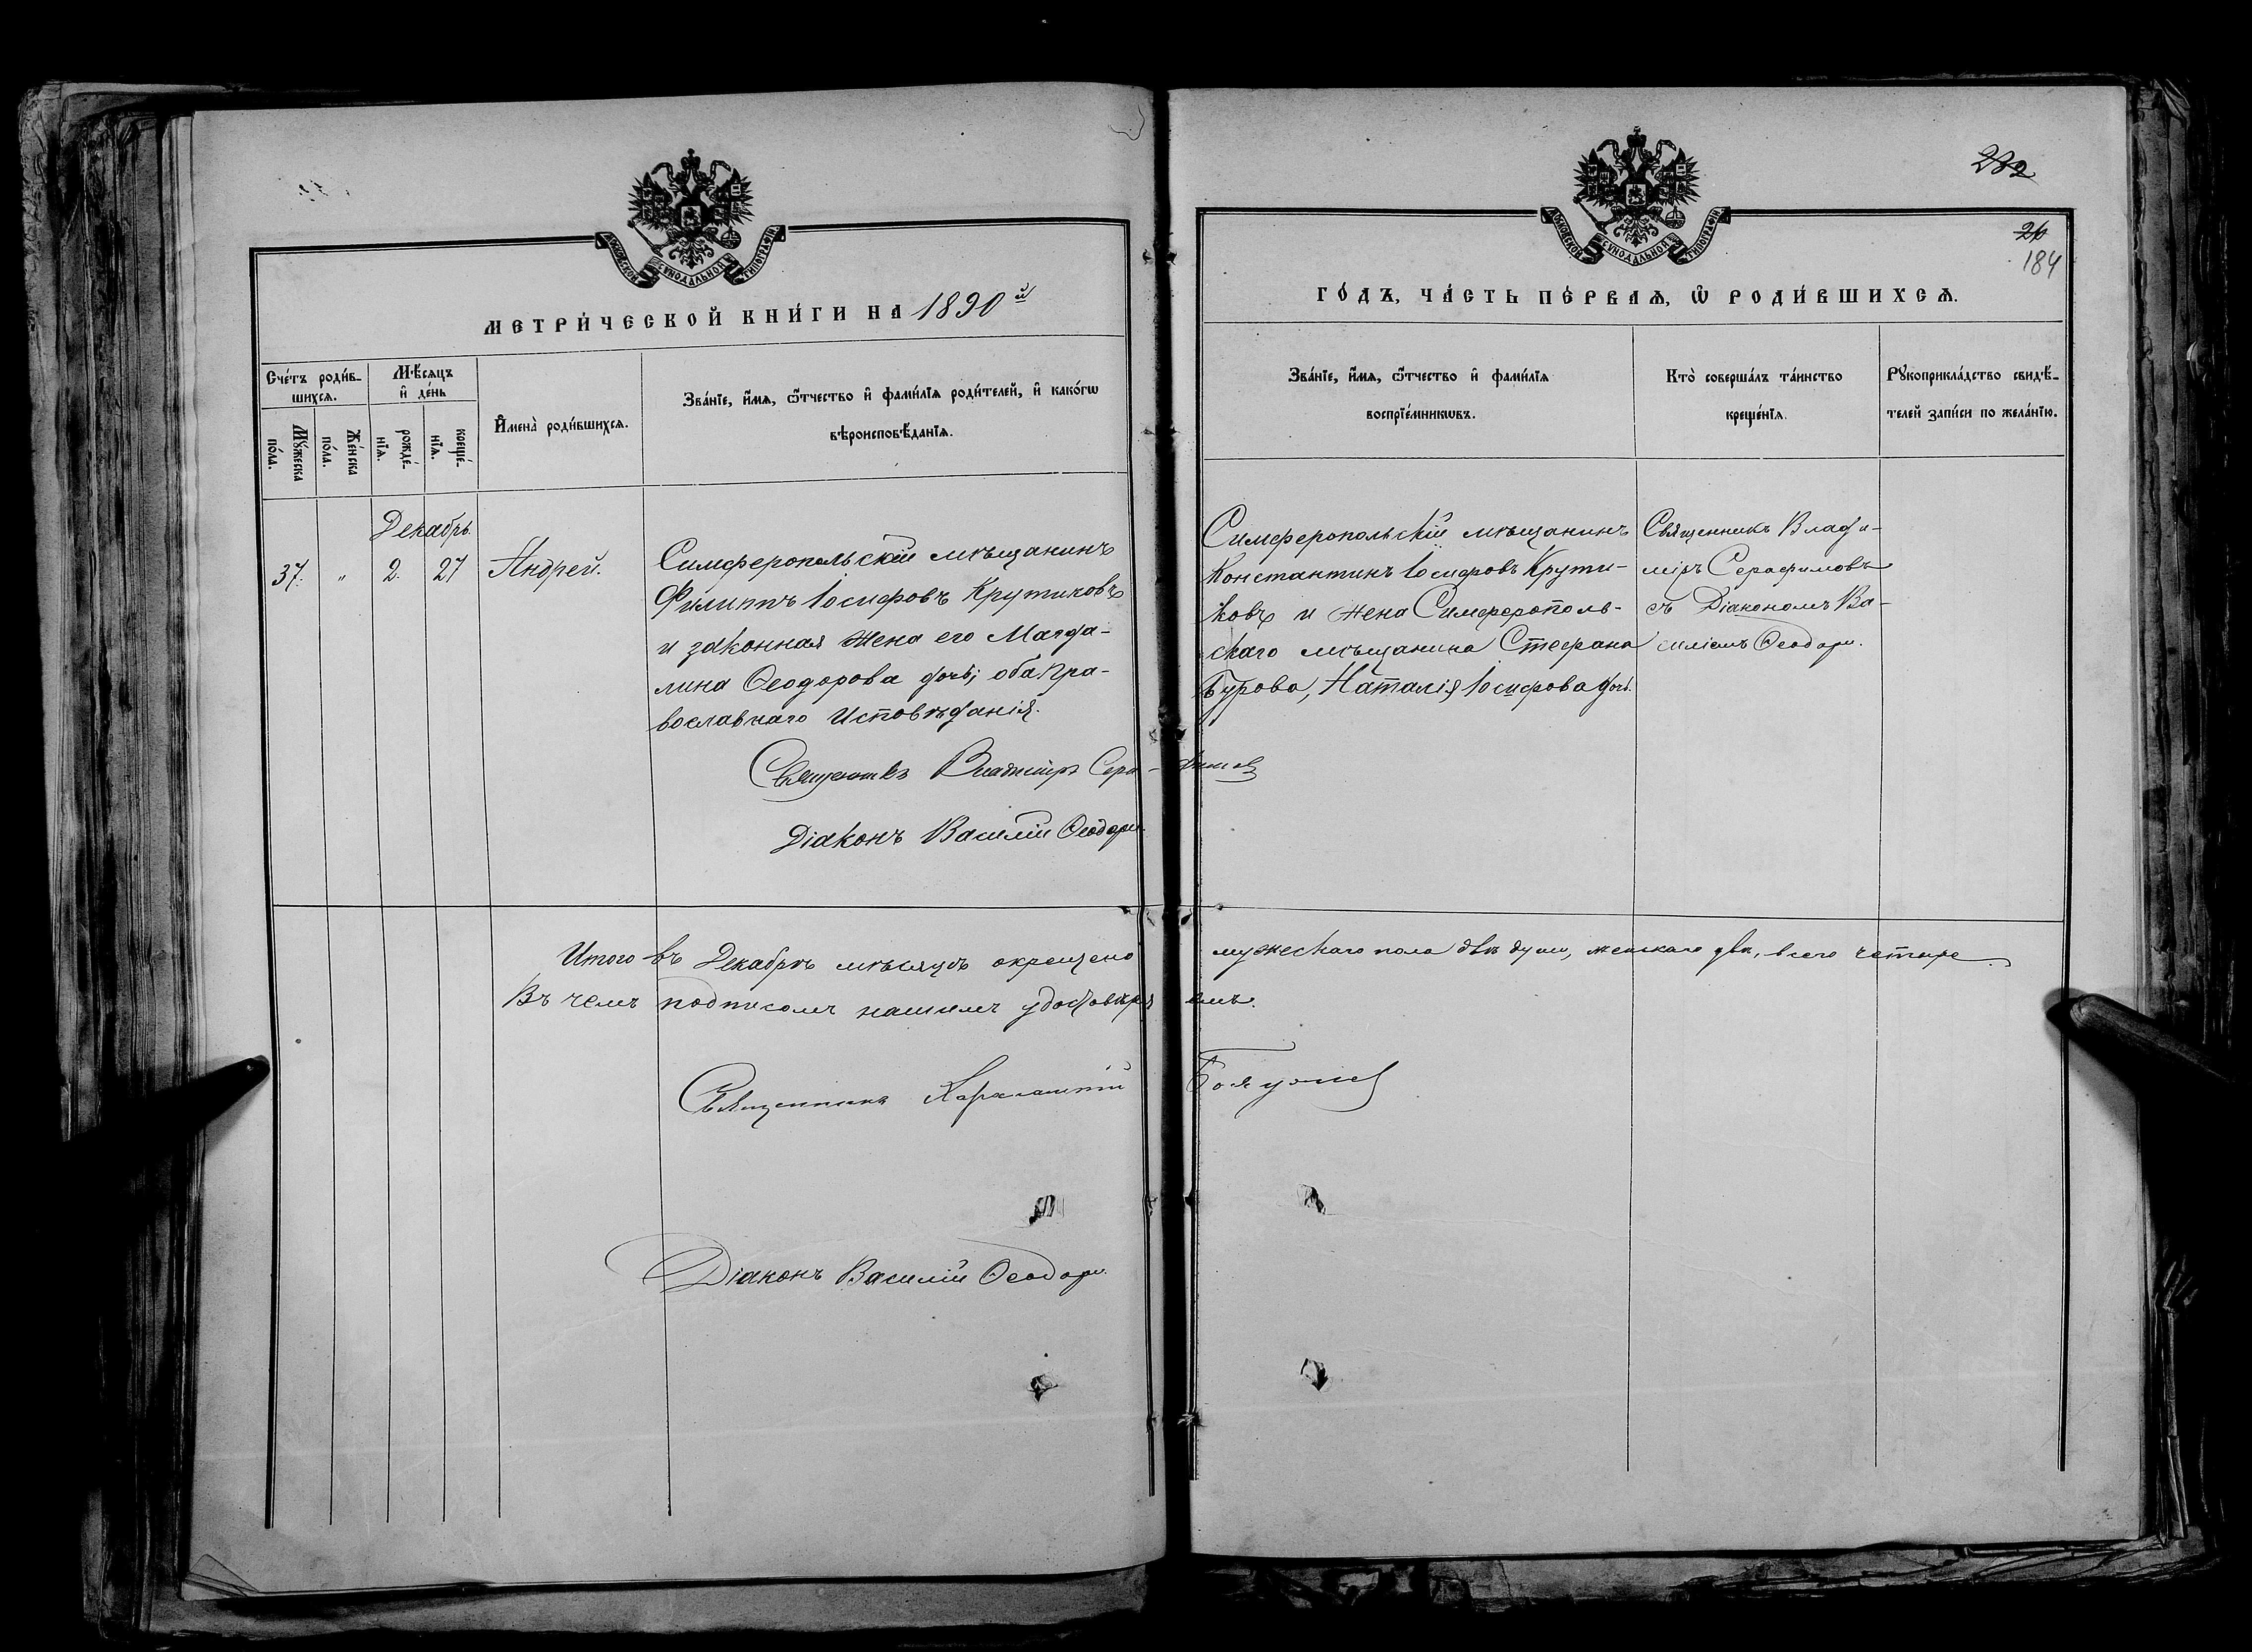 МОСКОВСКОЙ СѴНОДАЛЬНОЙ ТИПОГРАФІИ
МЕТРИ́ЧЕСКОЙ КНИ́ГИ НА 1890й
Сче́тъ роди́в-
шихсѧ.
Мѣ́сяцъ
и҆ де́нь
Мꙋ́жеска
по́ла.
Же́нска
по́ла.
рожде́-
нїѧ.
креще́-
нїѧ.
И҆мена̀ роди́вшихсѧ.
Зва́нїе, и҆́мѧ, ѻ҆́тчество и҆ фами́лїѧ роди́телей, и҆ како́гѡ
вѣроисповѣ́данїѧ.
Декабрь.
37. " 2. 27 Андрей.
Симферопольскій мѣщанинъ
Филиппъ Іосифовъ Крутиковъ
и законная жена его Магда-
лина Ѳеодорова дочь; оба Пра-
вославнаго Исповѣданія.
Священникъ Владиміръ Сера-фимовъ
Діаконъ Василій Ѳеодори
Итого въ Декабрѣ мѣсяцѣ окрещено
Въ чемъ подписомъ нашимъ удостовѣря
Священникъ Харалампій
Діаконъ Василій Ѳеодори.
232
26
184
МОСКОВСКОЙ СѴНОДАЛЬНОЙ ТИПОГРАФІИ
ГО́ДЪ, ЧА́СТЬ ПЕ́РВАѦ, Ѡ҆ РОДИ́ВШИХСѦ.
Зва́нїе, и҆́мѧ, ѻ҆́тчество и҆ фами́лїѧ
воспрїе́мникѡвъ.
Кто̀ соверша́лъ та́инство
креще́нїѧ.
Рꙋкоприкла́дство свидѣ́-
телей за́писи по жела́нїю.
Симферопольскій мѣщанинъ
Константинъ Іосифовъ Крути-
ковъ и жена Симферополь-
скаго мѣщанина Стефана
Бурова, Наталія Іосифова дочь.
Священникъ Влади-
міръ Серафимовъ
съ Діакономъ Ва-
силіемъ Ѳеодори.
мужескаго пола двѣ души, женскаго двѣ, всего четыре.
емъ.